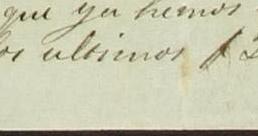 que ya hemos
los ultimos $